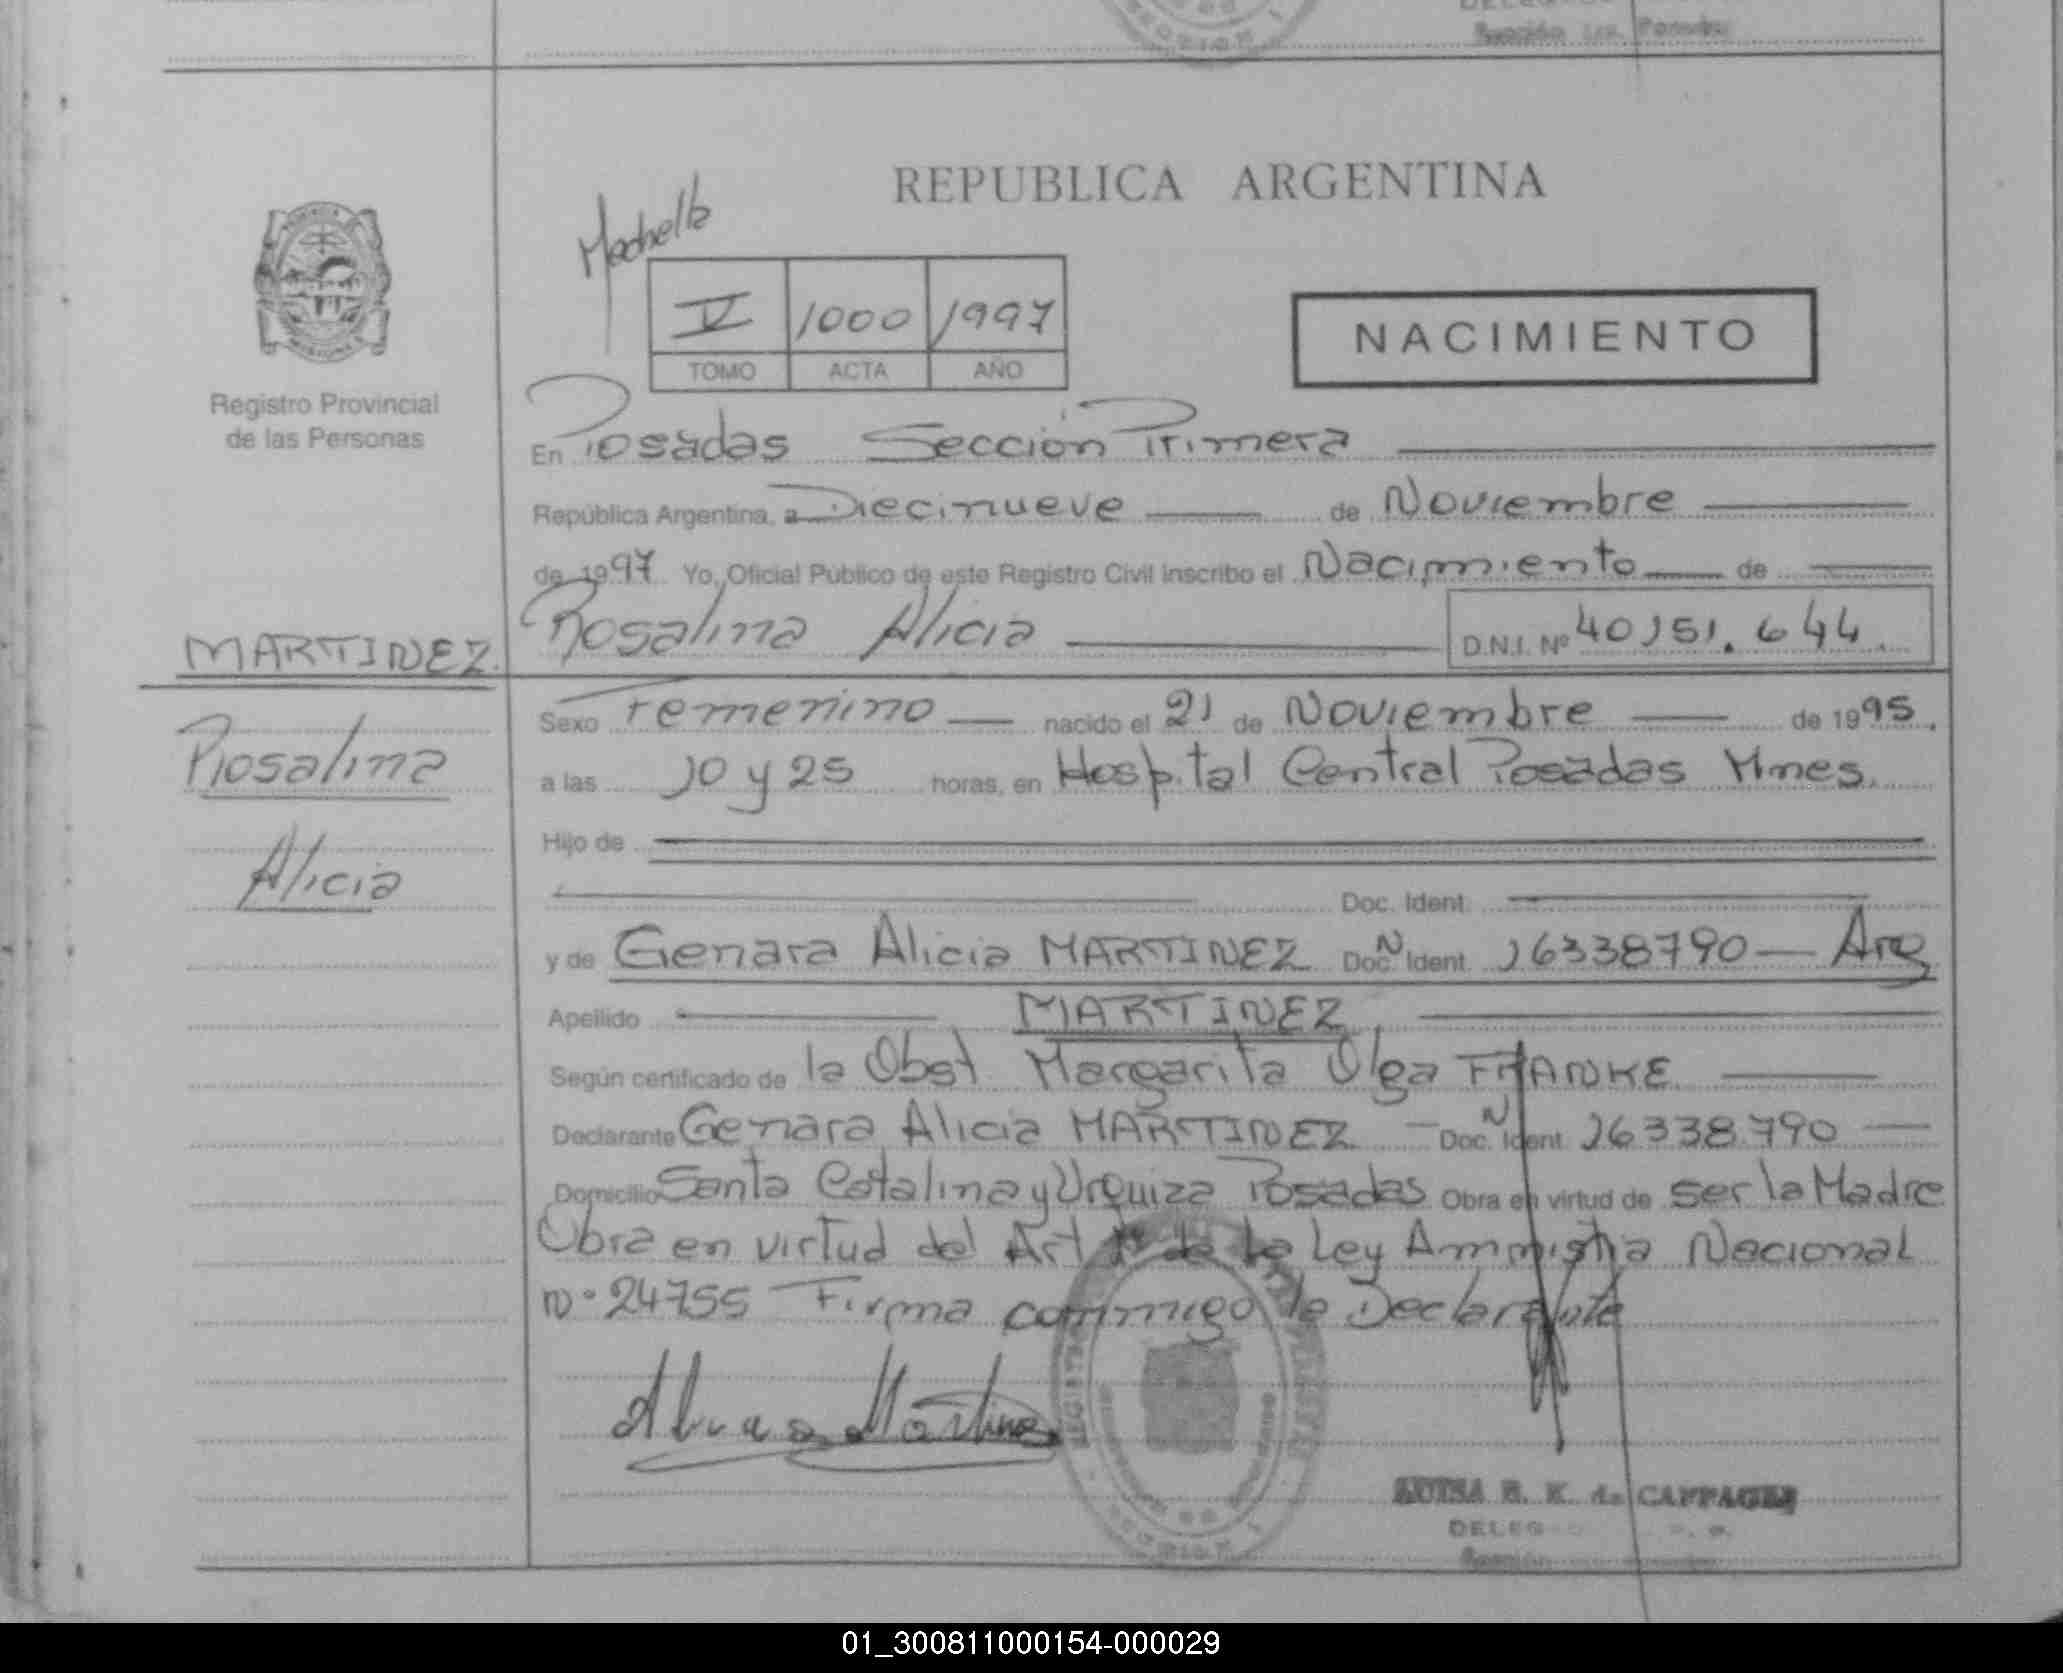 REPUBLICA ARGENTINA
V 1000 1997
TOMO ACTA AÑO
NACIMIENTO
Registro Provincial
de las Personas
En Posadas Sección Primera
República Argentina, a Diecinueve de Noviembre
de 1997 Yo, Oficial Público de este Registro Civil Inscribo el Nacimiento de
MARTINEZ Rosalina Alicia D.N.I. Nº 40151.644.
Rosalina
Alicia
Sexo Femenino nacido el 21 de Noviembre de 1995.
a las 10 y 25 horas, en Hospital Central Posadas Mnes.
Hijo de
Doc. Ident.
y de Genara Alicia MARTINEZ Doc. N Ident. 16338790 — Arg
Apellido MARTINEZ
Según certificado de la Obst Margarita Olga FRANKE
Declarante Genara Alicia MARTINEZ — Doc. N Ident. 16338790 —
Domicilio Santa Catalina y Urquiza Posadas Obra en virtud de ser la Madre
Obra en virtud del Art 1º de la Ley Amnistia Nacional
Nº 24755 Firma conmigo la Declarante
SECCION
01_300811000154-000029